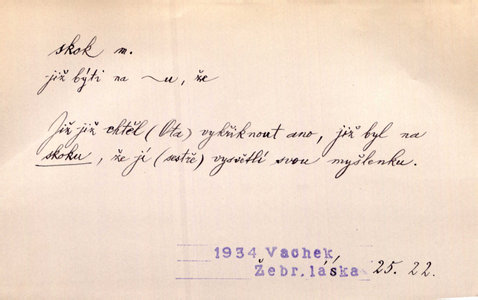 skok m.
již býti na ~u, že
Již již chtěl (Ota) vykřiknout ano, již byl na
skoku, že jí (sestře) vysvětlí svou myšlenku.
1934 Vachek,
Žebr. láska 25. 22.